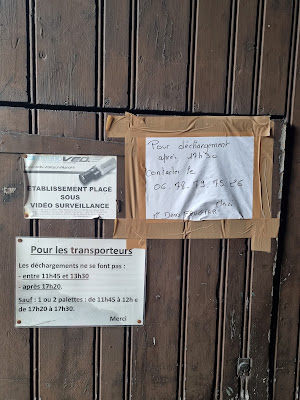 VEO
ÉTABLISSEMENT PLACÉ
SOUS
VIDÉO SURVEILLANCE
Pour déchargement
après 17h30
Contacter le
06.
Merci
Pour les transporteurs
Les déchargements ne se font pas :
- entre 11h45 et 13h30
- après 17h20.
Sauf : 1 ou 2 palettes : de 11h45 à 12h e
de 17h20 à 17h30.
Merci